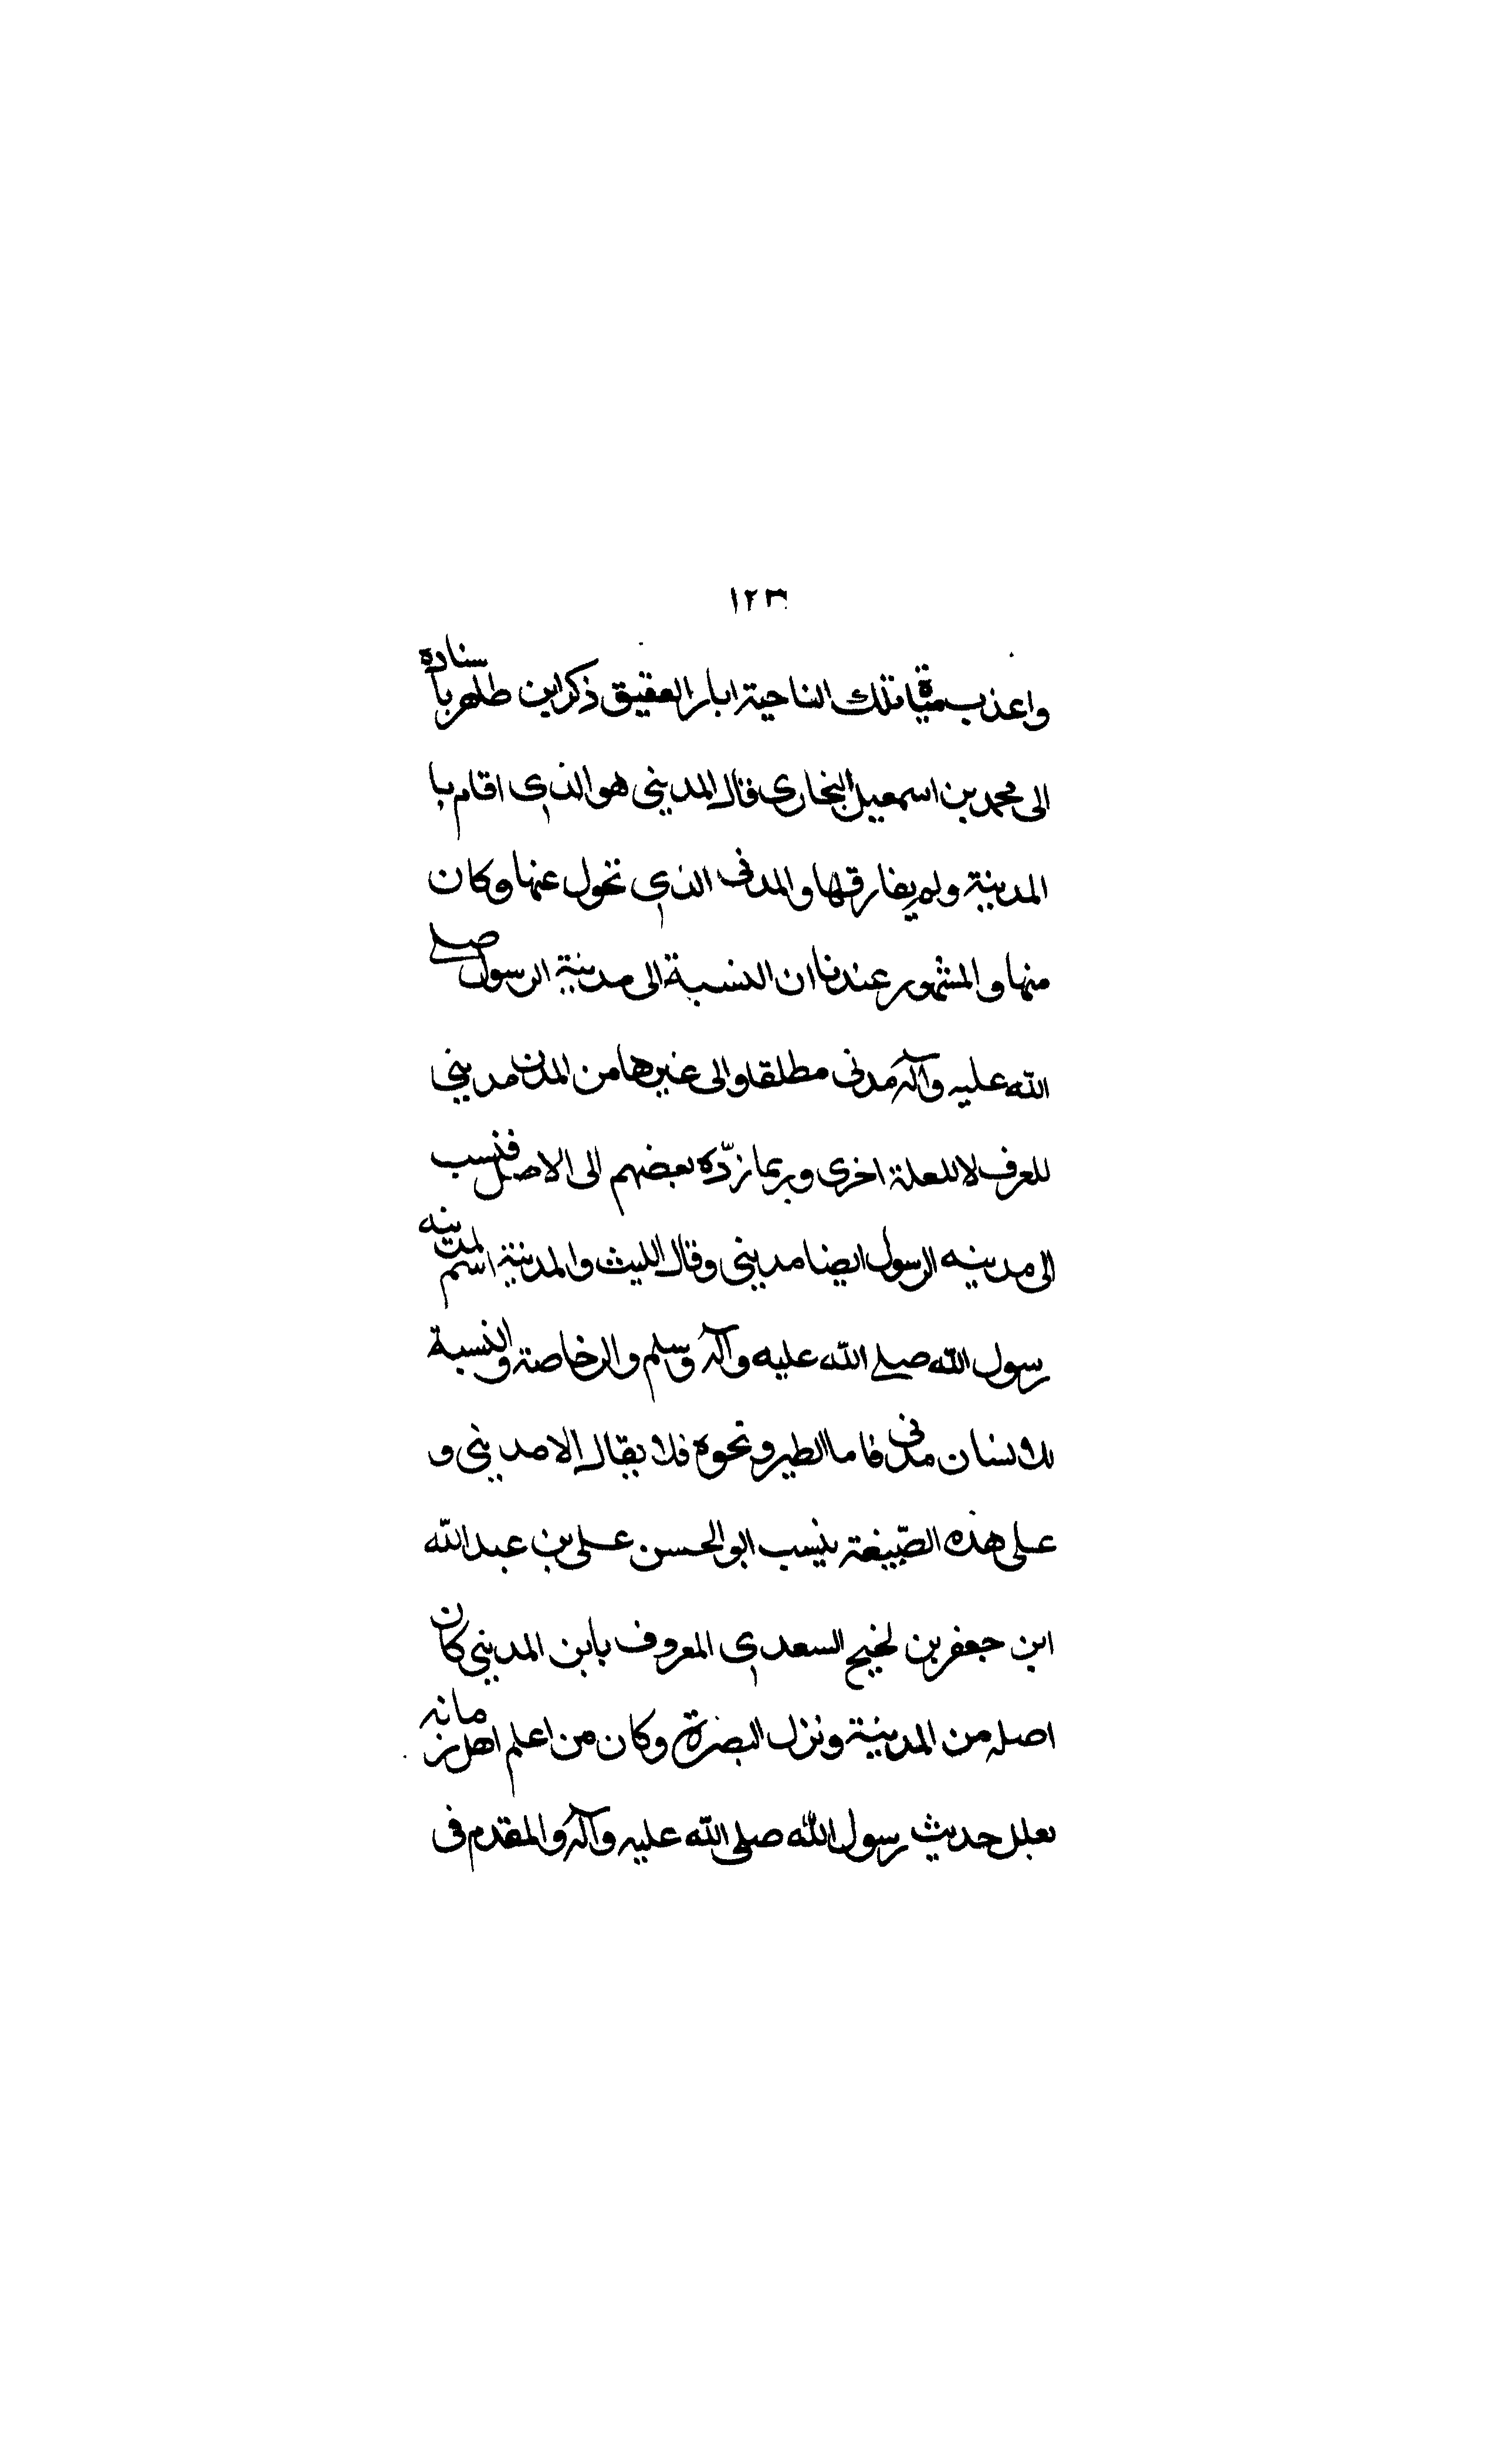 ١٢٣
واعذب مياه تلك الناحية ابار العقيق ذكر ابن طاهر باسناده
الى محمد بن اسمعيل البخارى قال المدينى هو الذى اقام با
المدينة ولم يفارقها والمدنى الذى تحول عنها وكان
منها والمشهور عندنا ان النسبة الى مدينة الرسول صلے
الله عليه وآله مدنى مطلقا والى غيرها من المدن مدينى
للعرف لا للعلة اخرى وربما ردّه بعضهم الى الاصل فنسب
الى مدينه الرسول ايضا مدينى وقال الليث والمدينة اسم لمدينه
رسول الله صلے الله عليه وآله وسلم والرخاصة والنسبة
للانسان مدنى فاما الطير ونحوه فلا يقال الا مدينى و
على هذه الصّيغة ينسب ابو الحسن على بن عبد الله
ابن جعفر بن نجيح السعدى المعروف بابن المدينى كان
اصله من المدينة ونزل البصرة وكان من اعلم اهل زمانه
بعلل حديث رسول الله صلى الله عليه وآله والمقدم فى